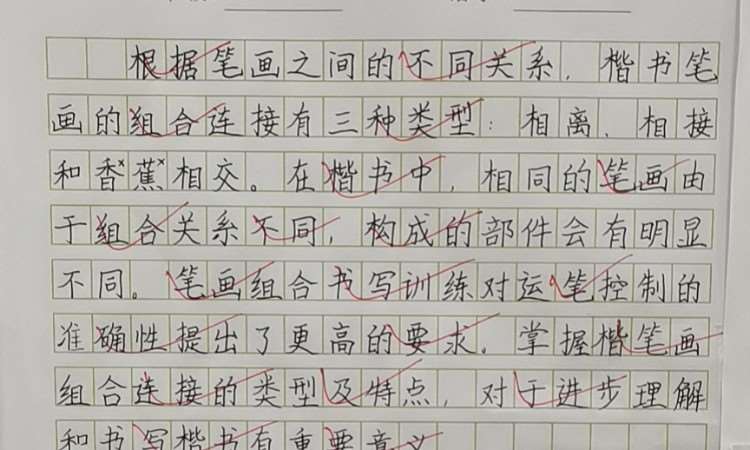 根据笔画之间的不同关系，楷书笔
画的组合连接有三种类型：相离、相接
和香蕉相交。在楷书中，相同的笔画由
于组合关系不同，构成的部件会有明显
不同。笔画组合书写训练对运笔控制的
准确性提出了更高的要求。掌握楷笔画
组合连接的类型及特点，对于进步理解
和书写楷书有重要意义